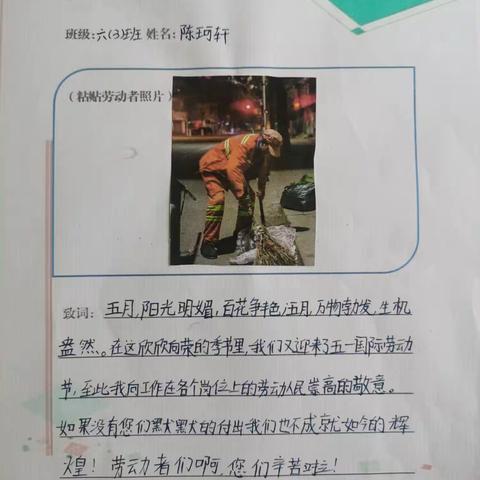 班级:六(3)班 姓名:陈珂轩
(粘贴劳动者照片)
致词: 五月,阳光明媚,百花争艳;五月,万物勃发,生机
盎然。在这欣欣向荣的季节里,我们又迎来了五一国际劳动
节,至此我向工作在各个岗位上的劳动人民崇高的敬意。
如果没有您们默默的付出我们也不成就如今的辉
煌!劳动者们啊,您们辛苦啦!